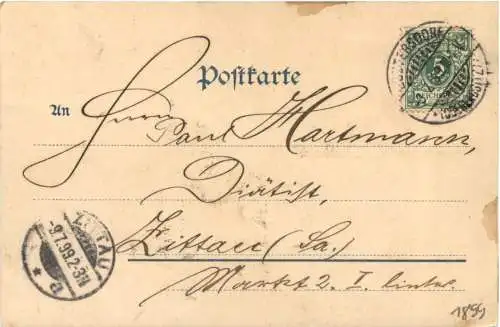 Postkarte
An Herrn
Paul Hartmann,
Diätist,
Zittau (Sa.)
Markt 2. I. links.
5
ZITTAU
-9.7.99.2-3N.
B
1899